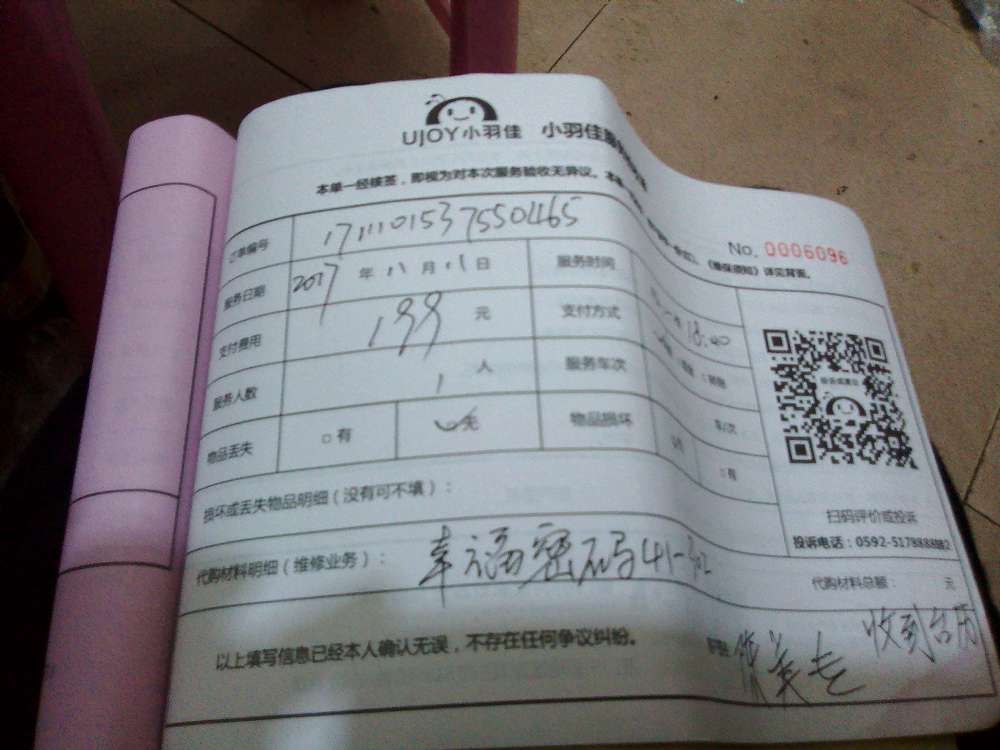 UJOY小羽佳 小羽佳
本单一经接签，即视为对本次服务验收无异议。
《维保须知》详见背面。
No. 0006096
订单编号 17111015375504465
服务日期 2017年11月11日 服务时间 18:40
支付费用 199元 支付方式
服务人数 1人 服务车次 车/次
物品丢失 □有 □无 物品损坏 □有
损坏或丢失物品明细（没有可不填）：
扫码评价或投诉
投诉电话：0592-5178888转2
代购材料明细（维修业务）： 幸福密码41-302
代购材料总额： 元
以上填写信息已经本人确认无误，不存在任何争议纠纷。
收到台历